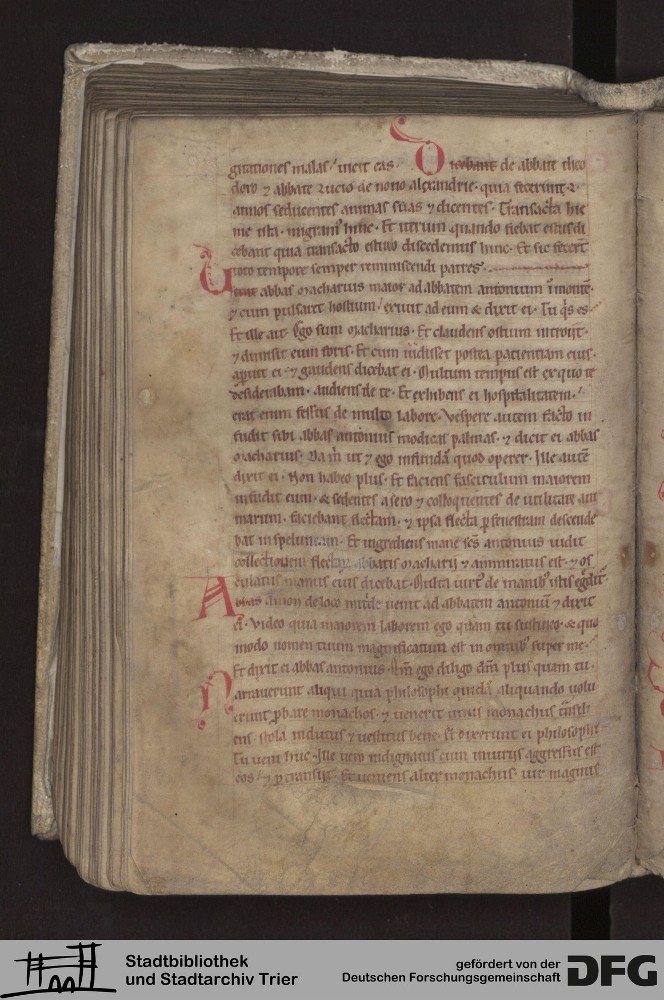 gitationes malas / uicit eas. Dicebant de abbate theo
doro ⁊ abbate lucio de nono alexandrie. quia fecerunt .l.
annos seducentes animas suas ⁊ dicentes. Transacta hie
me ista. migram' hinc. Et iterum quando fiebat estus di
cebant quia transacto estiuo discedemus hinc. Et sic fecert
toto tempore semper reminiscendi patres.
Uenit abbas Macharius maior ad abbatem antonium ī monte.
⁊ cum pulsaret hostium / exiuit ad eum & dixit ei. Tu q̇s es.
Et ille ait. Ego sum Macharius. Et claudens ostium introijt.
⁊ dimisit eum foris. Et cum uidisset postea patientiam eius.
aperuit ei. ⁊ gaudens dicebat ei. Multum tempus est ex quo te
desiderabam. audiens de te. Et exhibens ei hospitalitatem. /
erat enim fessus de multo labore. Vespere autem facto in
fudit sibi abbas antonius modicas palmas. ⁊ dicit ei abbas
Macharius. Da m̄ ut ⁊ ego infundā quod operer. Ille autē
dixit ei. Non habeo plus. Et faciens fasciculum maiorem
infudit eum. & sedentes a sero ⁊ colloquentes de utilitate ani
marum. faciebant flectam. ⁊ ipsa flecta ꝑ fenestram descende
bat in speluncam. Et ingrediens mane scs̄ antonius uidit
collectionem flectaꝝ abbatis Macharij ⁊ ammiratus est. ⁊ os
culatus manus eius dicebat. Multa uirt' de manib' istis
Abbas amon de loco uenit ad abbatem antoniū ⁊ dixit
ei. Video quia maiorem laborem ego quam tu sustineo. & quo
modo nomen tuum magnificatum est in omnib' super me.
Et dixit ei abbas antonius. Qm̄ ego diligo dm̄ plus quam tu.
Narrauerunt aliqui quia philosophi quidā aliquando uolu
erunt ꝓbare monachos. ⁊ uenerit unus monachus
ens. stola indutus ⁊ uestitus bene. & dixerunt ei philosophi
Tu ueni huc. Ille uero indignatus cum iniurijs aggressus est
eos / ⁊ ꝑtransijt. Et ueniens alter monachus. uir magnus
Stadtbibliothek
und Stadtarchiv Trier
gefördert von der
Deutschen Forschungsgemeinschaft
DFG